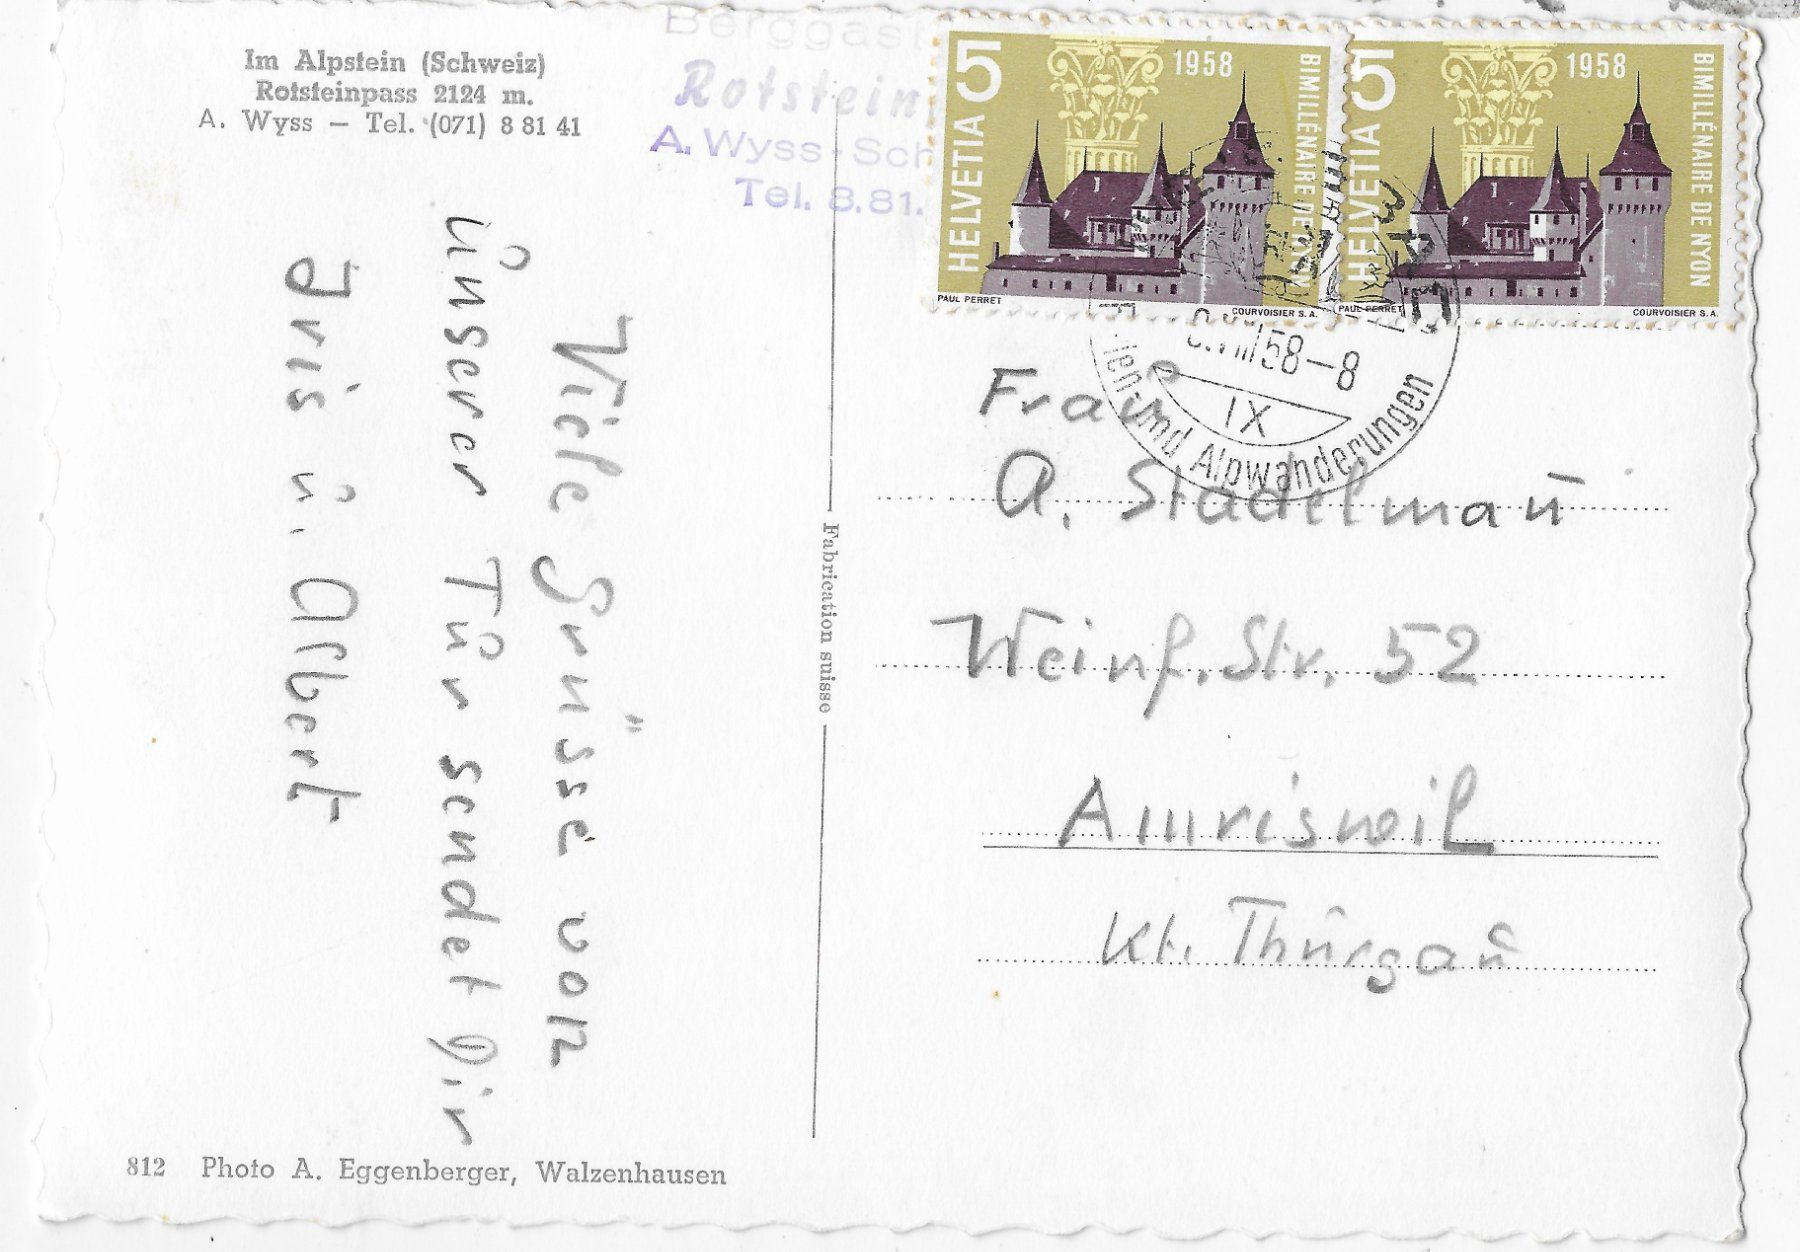 Im Alpstein (Schweiz)
Rotsteinpass 2124 m.
A. Wyss – Tel. (071) 8 81 41
Berggast
Rotstein
A. Wyss-Sch
Tel. 8.81.
5
HELVETIA
1958
BIMILLÉNAIRE DE NYON
PAUL PERRET
COURVOISIER S.A.
5
HELVETIA
1958
BIMILLÉNAIRE DE NYON
PAUL PERRET
COURVOISIER S.A.
58–8
IX
ien- und Alpwanderungen
Viele Grüsse von
unserer Tür sendet Dir
Iris u. Albert
Fabrication suisse
Frau
A. Stadelman̄
Weinf. Str. 52
Amrisweil
Kt. Thurgau
812 Photo A. Eggenberger, Walzenhausen